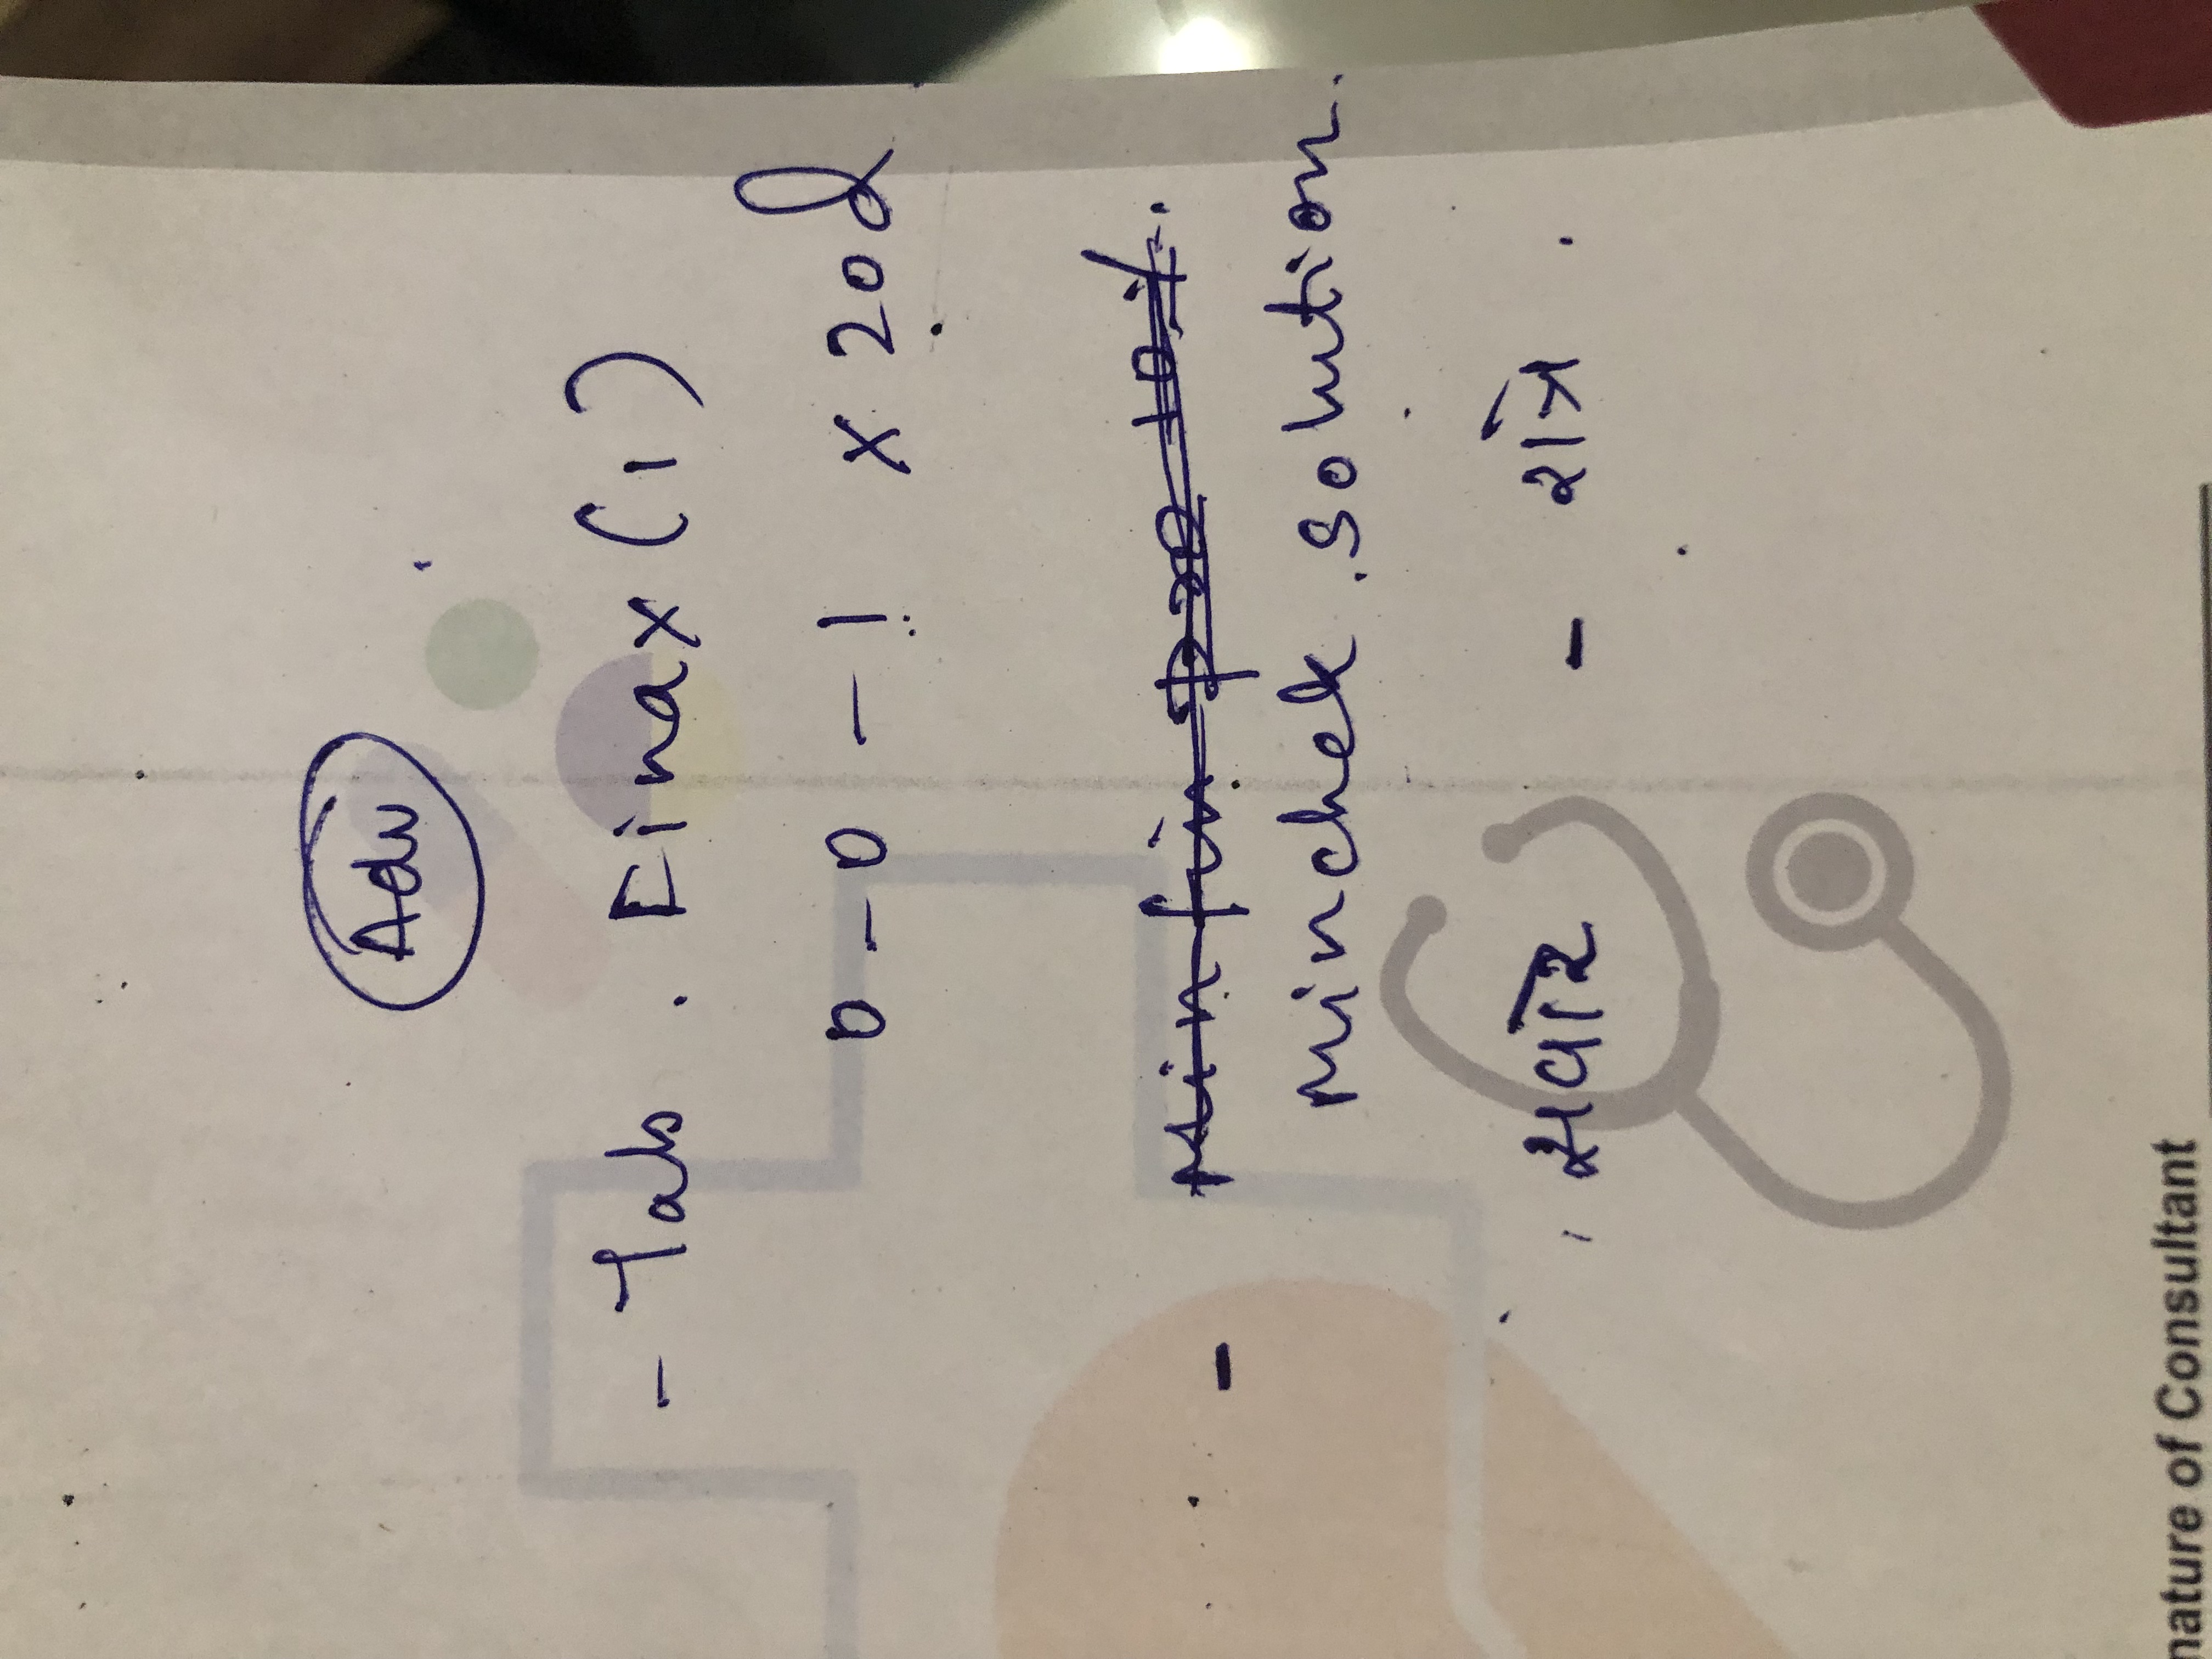 Adv
- Tab. Finax (1)
0 - 0 - 1 x 20d
- Minfin pro 10%.
Minchek solution.
सवारे - रात्रे.
nature of Consultant